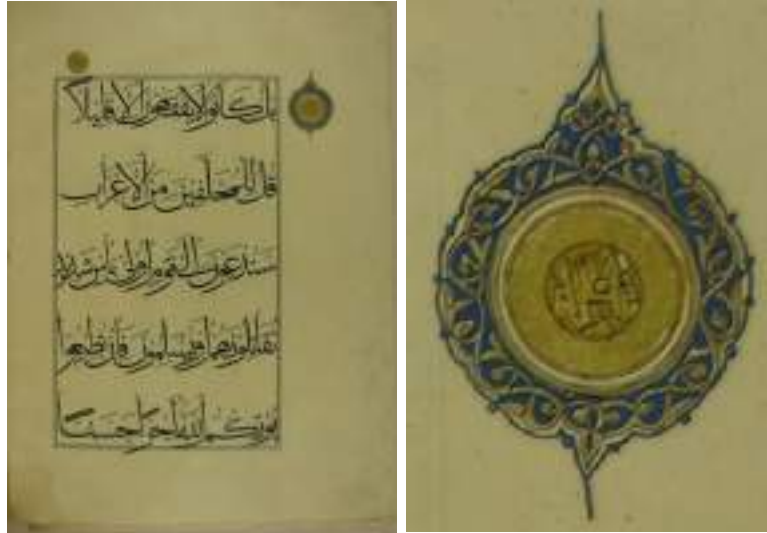 بل كانوا لا يفقهون الا قليلا
قل للمخلفين من الاعراب
ستدعون الى قوم اولى باس شديد
تقاتلونهم او يسلمون فان تطيعوا
يوتكم الله اجرا حسنا